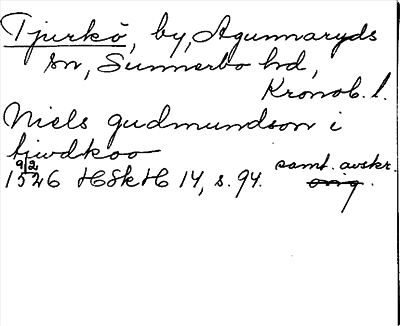 Tjurkö, by, Agunnaryds
sn, Sunnerbo hd,
Kronob. l.
Niels gudmundson i
tiwdkoo
9/2
1526 HSkH 14, s. 94. samt. avskr.
orig.